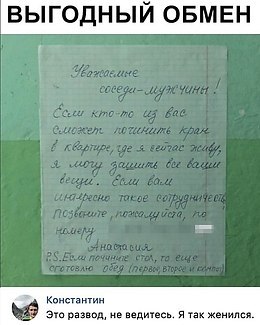 ВЫГОДНЫЙ ОБМЕН
Уважаемые
соседи-мужчины!
Если кто-то из вас
сможет починить кран
в квартире, где я сейчас живу,
я могу зашить все ваши
вещи. Если вам
интересно такое сотрудничество
позвоните, пожалуйста, по
номеру
Анастасия
P.S. Если почините стол, то еще
приготовлю обед (первое, второе и компот)
Константин
Это развод, не ведитесь. Я так женился.